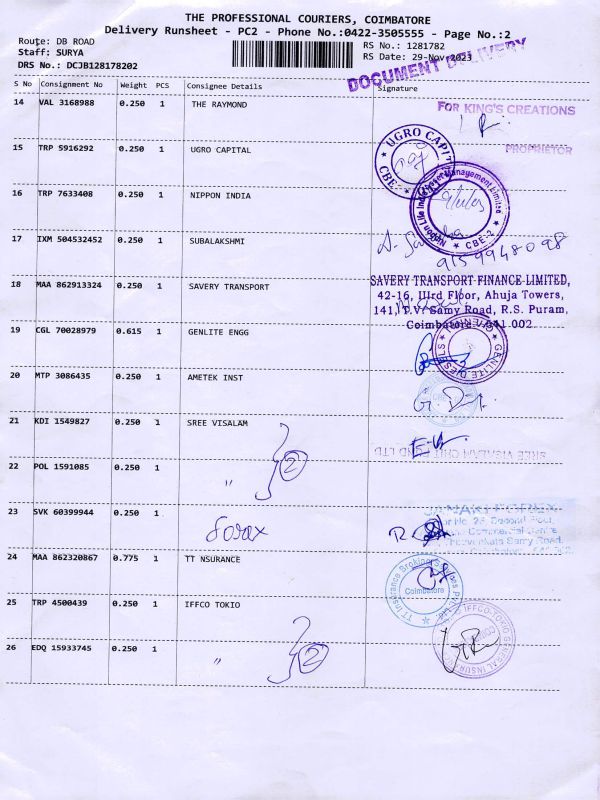 THE PROFESSIONAL COURIERS, COIMBATORE
Delivery Runsheet - PC2 - Phone No.:0422-3505555 - Page No.:2
Route: DB ROAD
Staff: SURYA
DRS No.: DCJB128178202
RS No.: 1281782
RS Date: 29-Nov-2023
DOCUMENT DELIVERY
S No Consignment No Weight PCS Consignee Details Signature
14 VAL 3168988 0.250 1 THE RAYMOND
FOR KING'S CREATIONS
PROPRIETOR
15 TRP 5916292 0.250 1 UGRO CAPITAL
UGRO CAPIT
CBE
16 TRP 7633408 0.250 1 NIPPON INDIA
Nippon Life India Asset Management Limited
CBE-2
17 IXM 504532452 0.250 1 SUBALAKSHMI
9159948098
18 MAA 862913324 0.250 1 SAVERY TRANSPORT
SAVERY TRANSPORT FINANCE LIMITED,
42-16, IIIrd Floor, Ahuja Towers,
141, T.V. Samy Road, R.S. Puram,
Coimbatore - 641 002
19 CGL 70028979 0.615 1 GENLITE ENGG
20 MTP 3086435 0.250 1 AMETEK INST
21 KDI 1549827 0.250 1 SREE VISALAM
SREE VISALAM CHIT FUND LTD
22 POL 1591085 0.250 1 " 2
23 SVK 60399944 0.250 1
Forex
24 MAA 862320867 0.775 1 TT NSURANCE
TT Insurance Broking Services
Coimbatore
25 TRP 4500439 0.250 1 IFFCO TOKIO
IFFCO-TOKIO GENERAL INSURANCE
26 EDQ 15933745 0.250 1 " 2